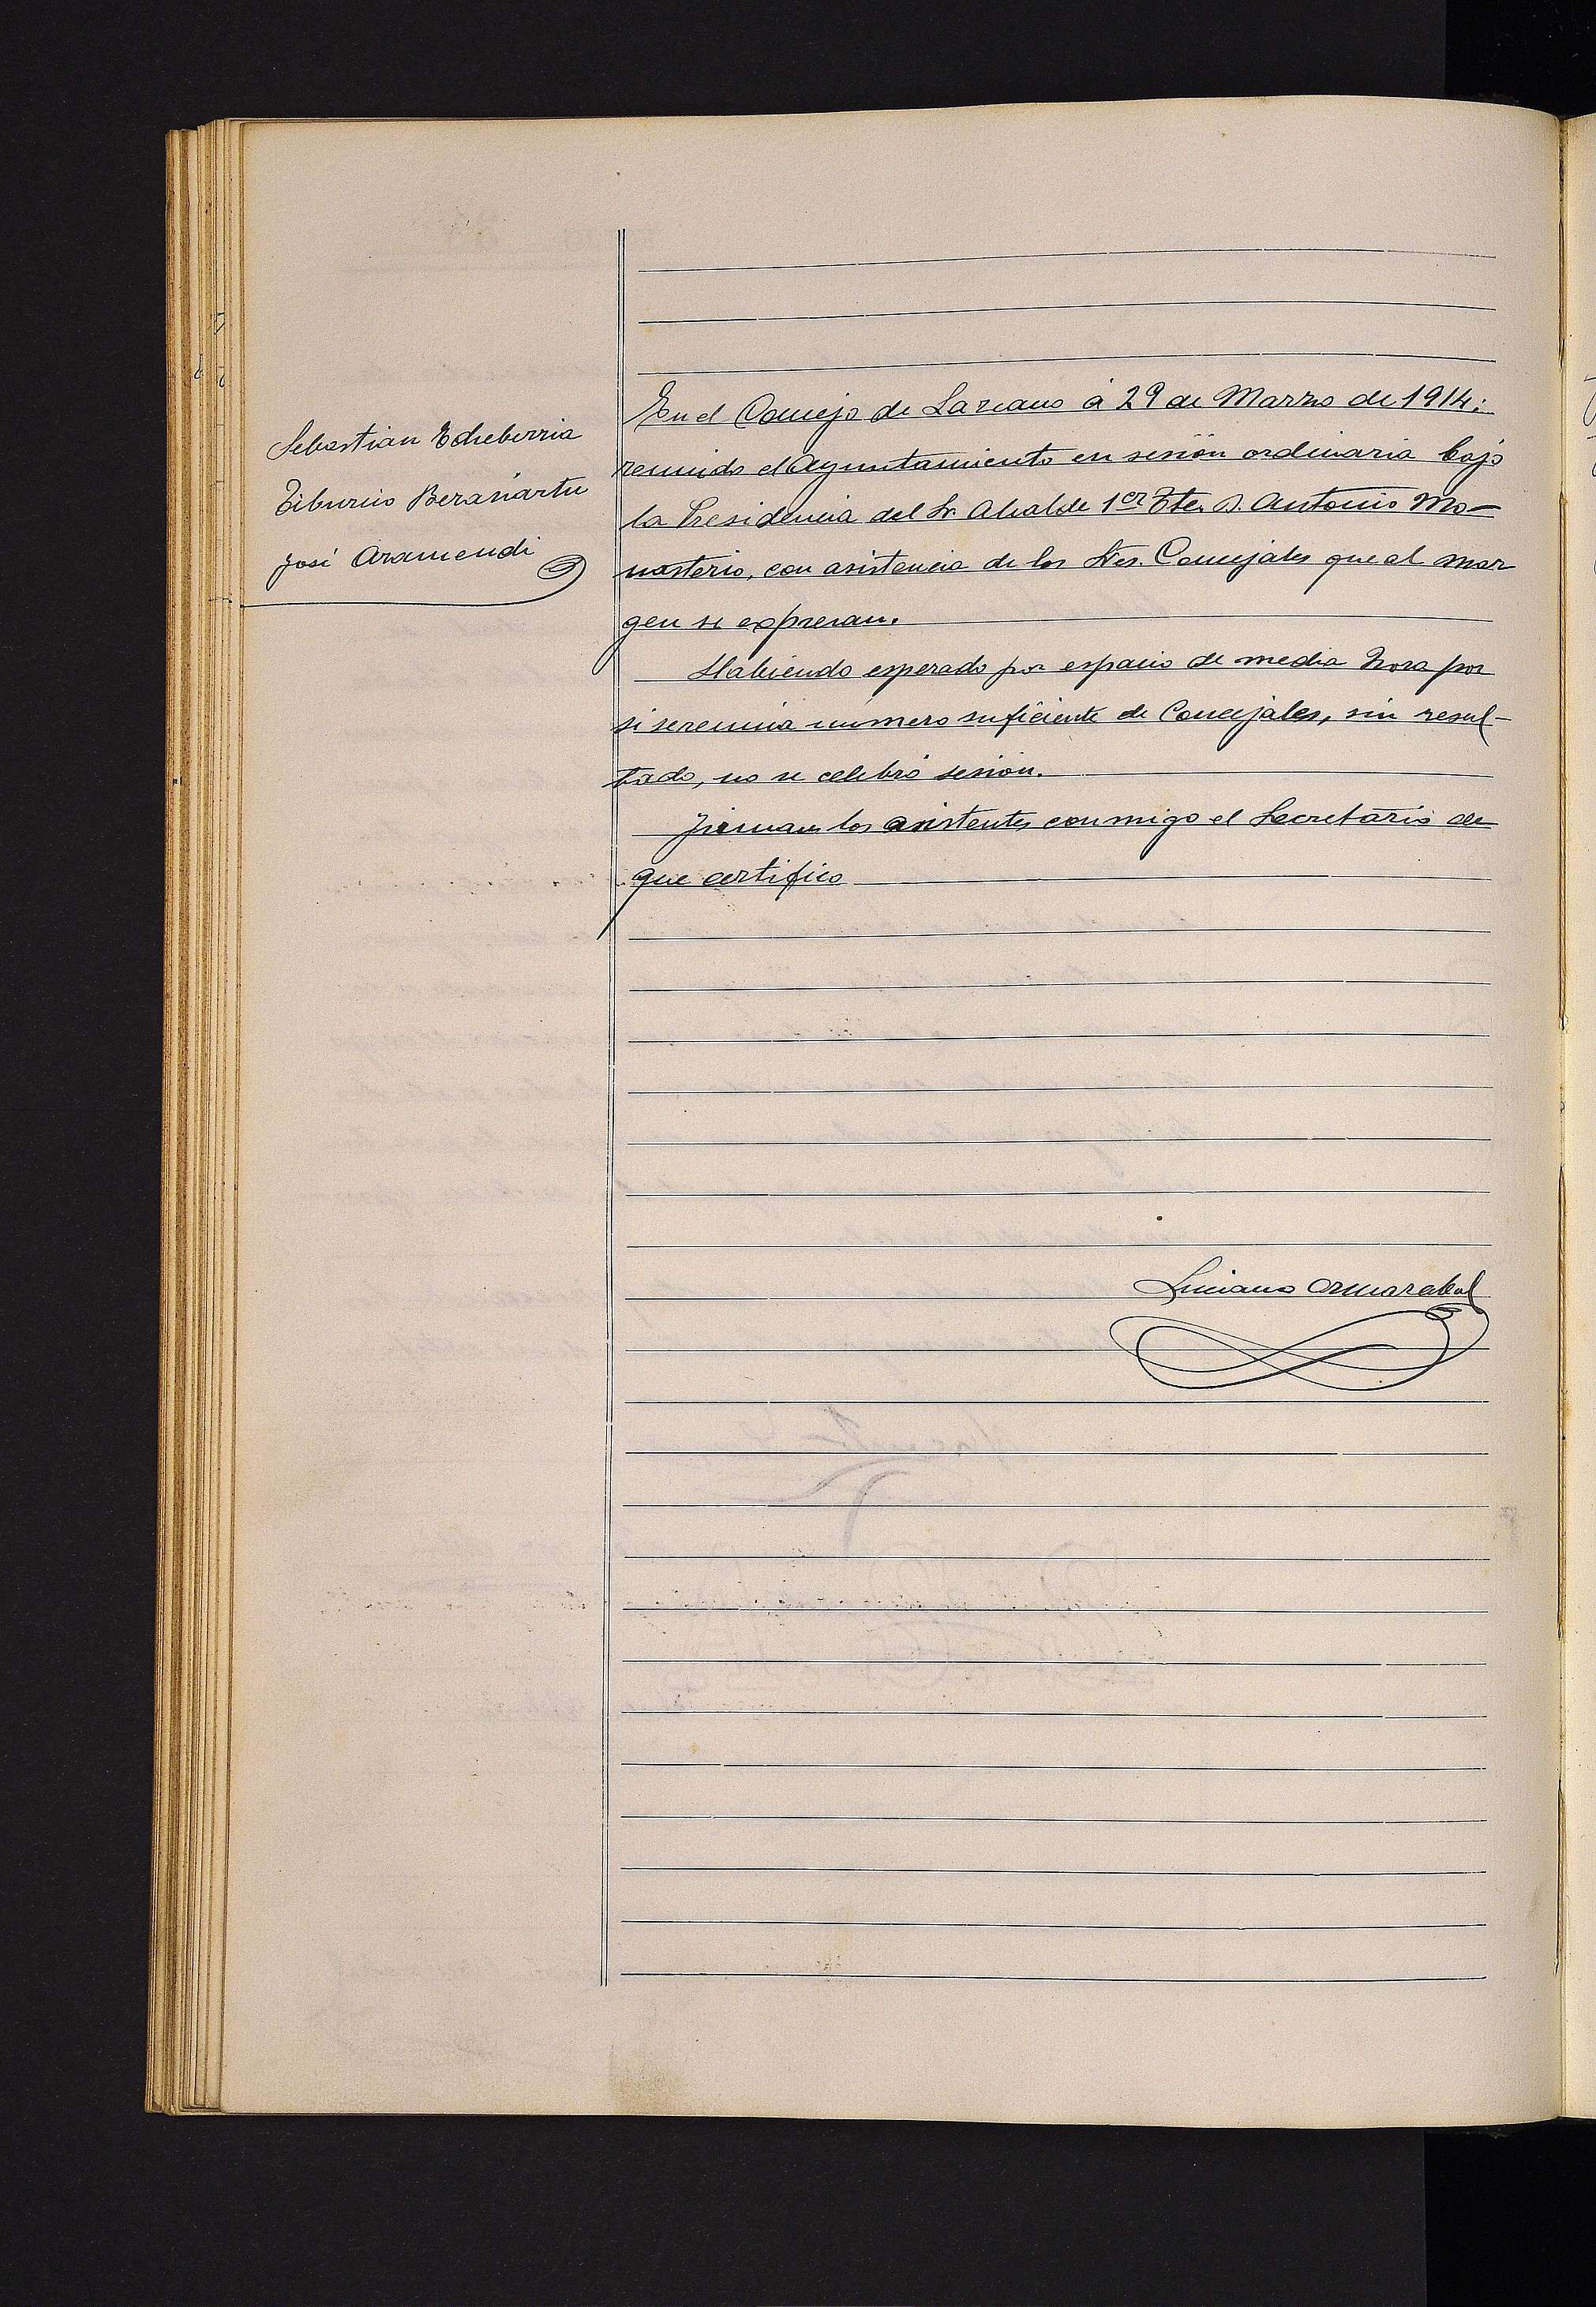 Sebastian Echeberria
Tiburcio Berasiartu
José Aramendi
En el Concejo de Lazcano á 29 de Marzo de 1914:
reunido el Ayuntamiento en sesión ordinaria bajo
la Presidencia del Sr. Alcalde 1er Tte. D. Antonio Mo-
nasterio, con asistencia de los Sres. Concejales que al mar
gen se expresan.
Habiendo esperado por espacio de media hora por
si se reunia número suficiente de Concejales, sin resul-
tado, no se celebró sesión.
Firman los asistentes conmigo el Secretario de
que certifico
Luciano